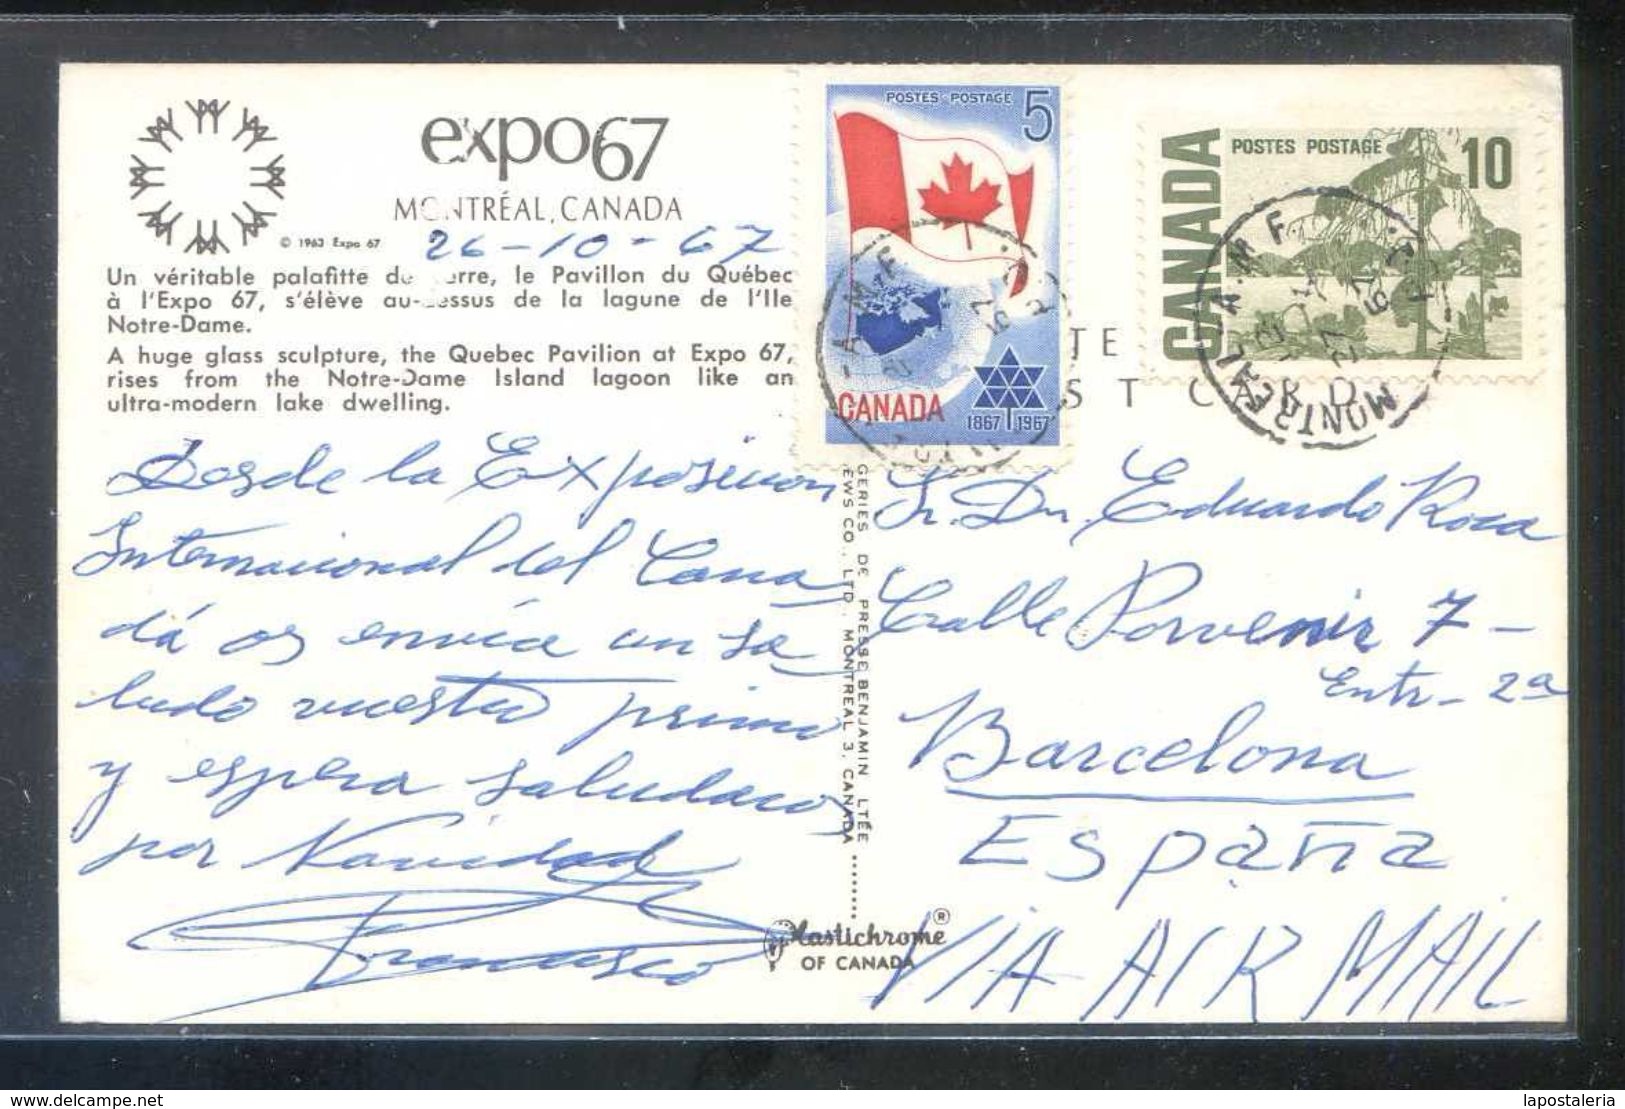 expo67
MONTRÉAL, CANADA
© 1963 Expo 67
26-10-67
Un véritable palafitte de verre, le Pavillon du Québec
à l'Expo 67, s'élève au-dessus de la lagune de l'Ile
Notre-Dame.
A huge glass sculpture, the Quebec Pavilion at Expo 67,
rises from the Notre-Dame Island lagoon like an
ultra-modern lake dwelling.
Desde la Exposicion
Internacional del Cana
dá os envía un sa
ludo vuestro primo
y espera saludaros
por Navidad
Francisco
POSTES · POSTAGE 5
CANADA
1867 1967
CANADA
POSTES POSTAGE 10
MONTREAL A.M.F.
TE
ST CARD
GERIES DE PRESSE BENJAMIN LTÉE
EWS CO., LTD. MONTREAL 3, CANADA
Plastichrome ®
OF CANADA
Sr. Dn. Eduardo Roca
Calle Porvenir 7 -
Entr - 2a
Barcelona
España
VIA AIR MAIL
http://www.delcampe.net
lapostaleria